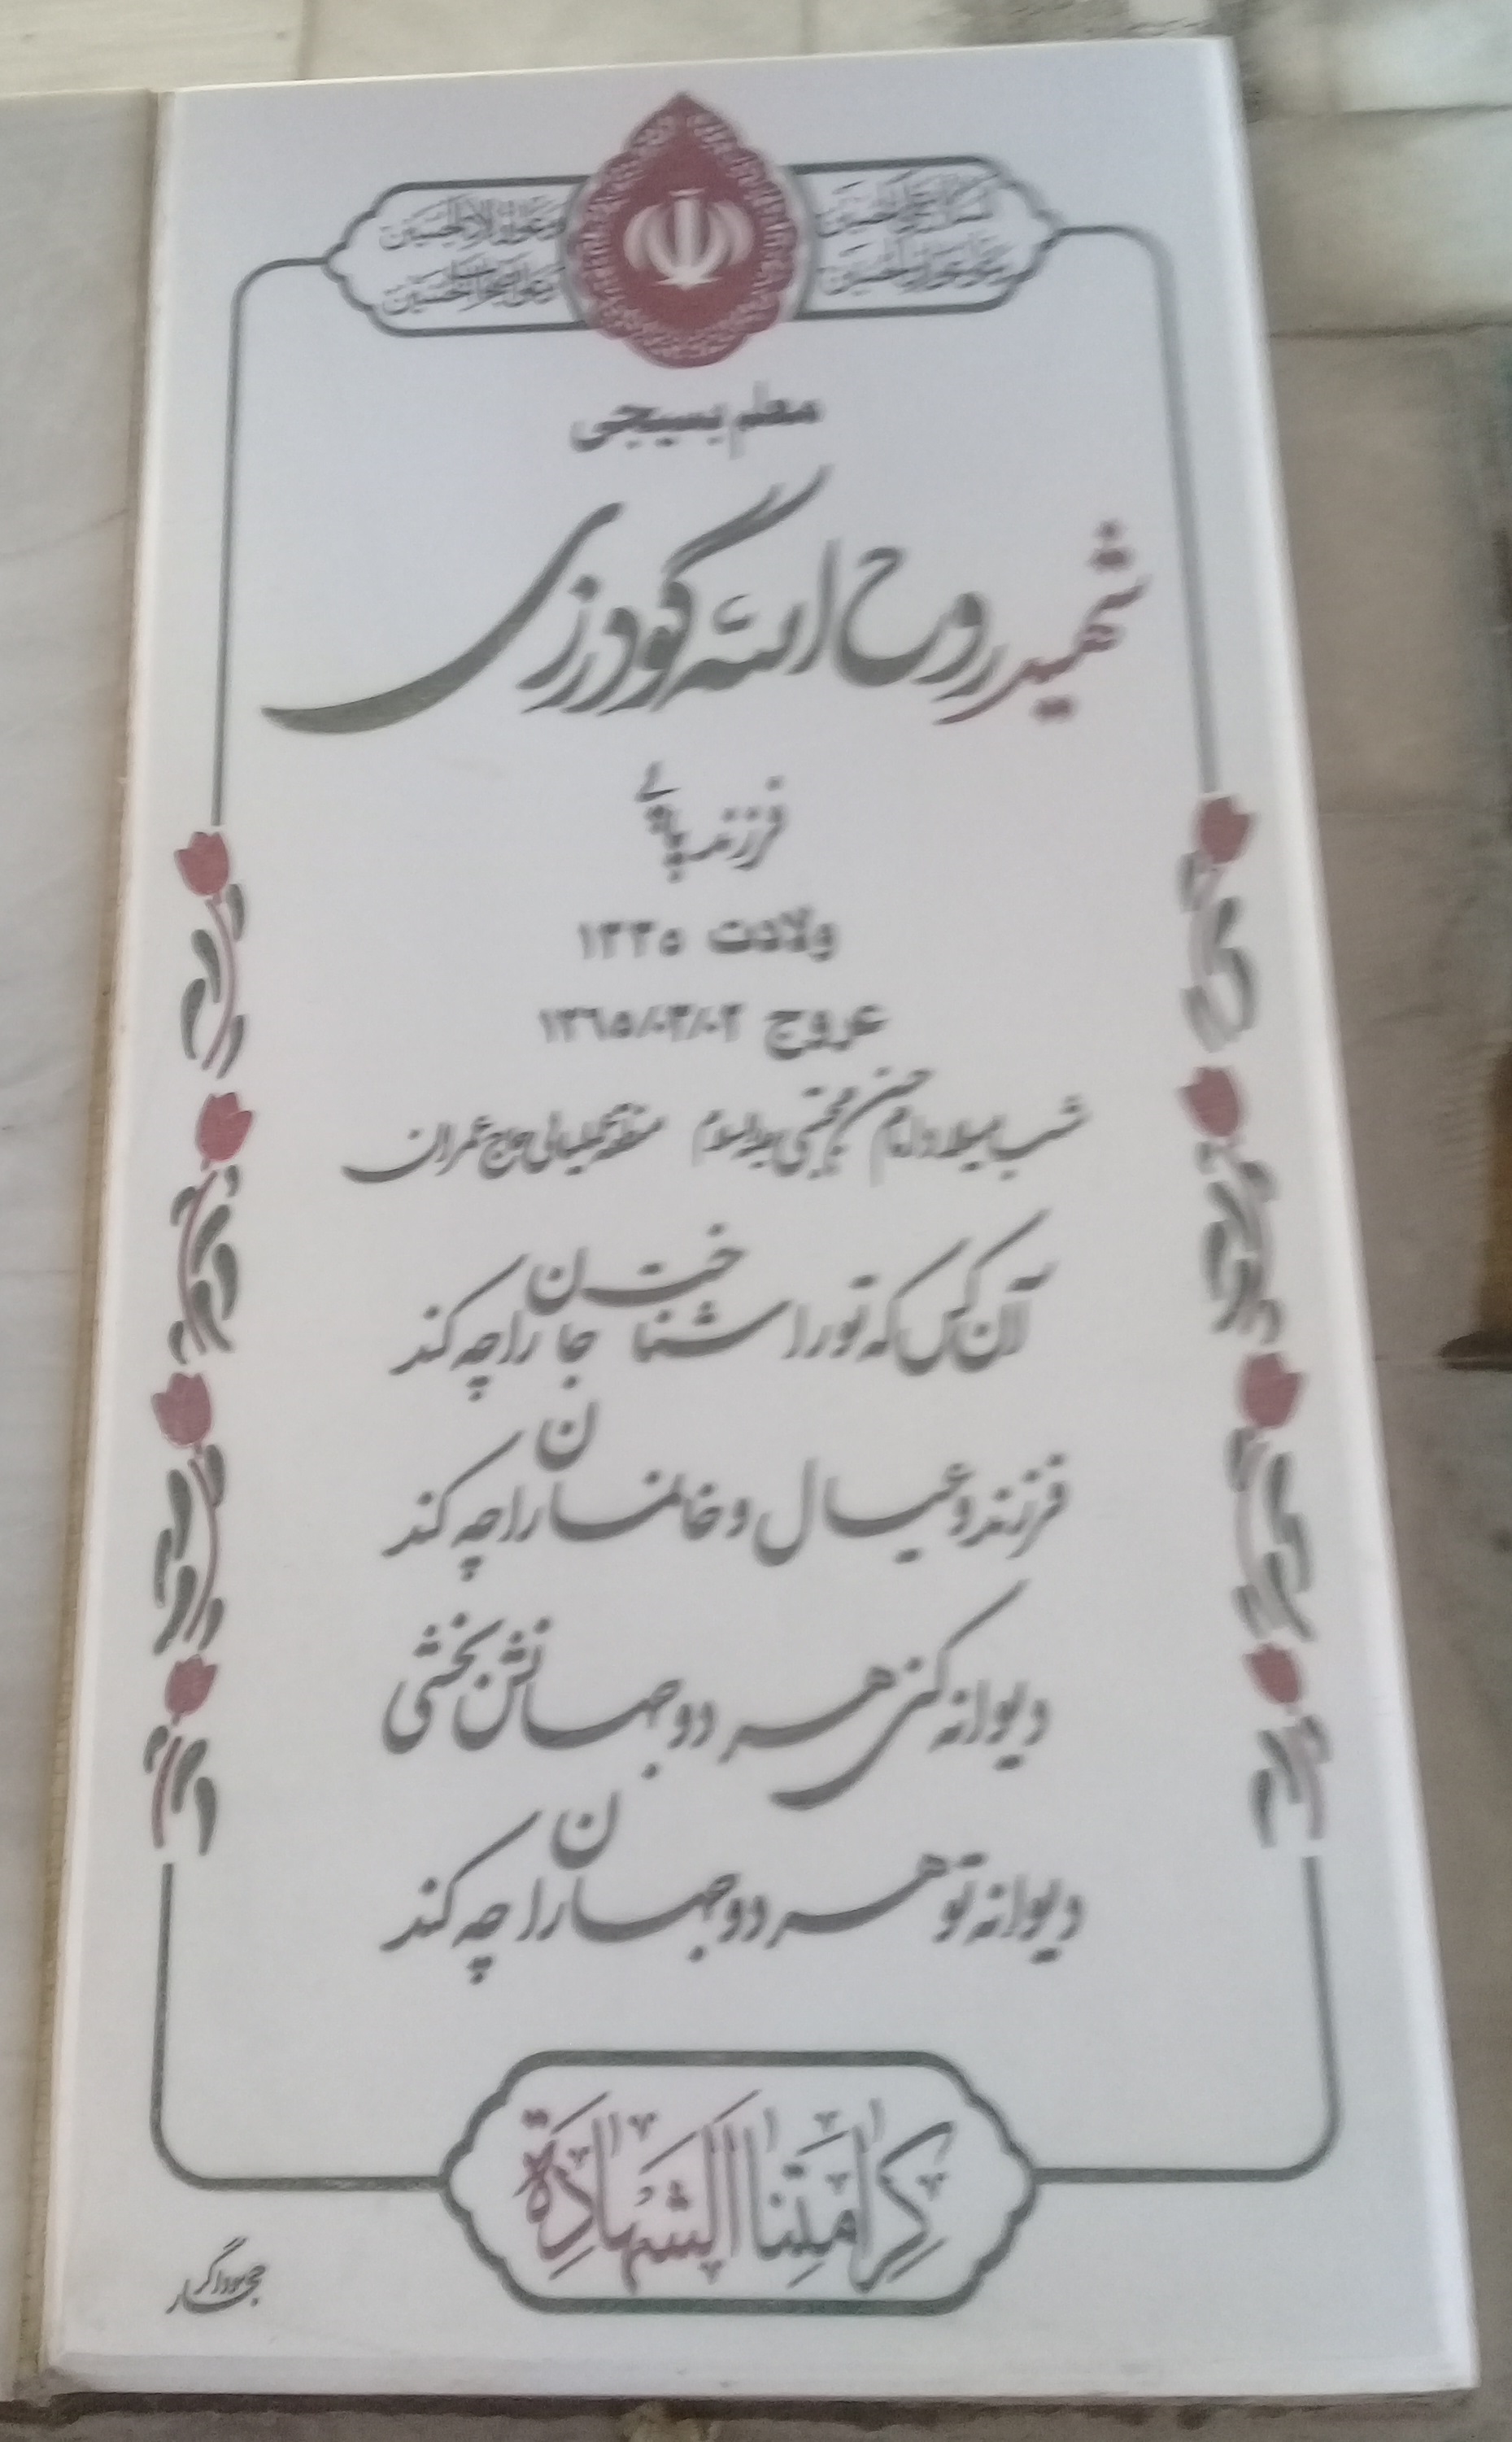 السلام علی الحسین
و علی علی بن الحسین
و علی اولاد الحسین
و علی اصحاب الحسین
معلم بسیجی
شهید روح الله گودرزی
فرزند
ولادت ۱۳۳۵
عروج ۱۳۶۵/۰۳/۰۲
شب میلاد امام حسن مجتبی علیه السلام منطقه عملیاتی حاج عمران
آن کس که تو را شناخت جان را چه کند
فرزند و عیال و خانمان را چه کند
دیوانه کنی هر دو جهانش بخشی
دیوانه تو هر دو جهان را چه کند
کرامتنا الشهادة